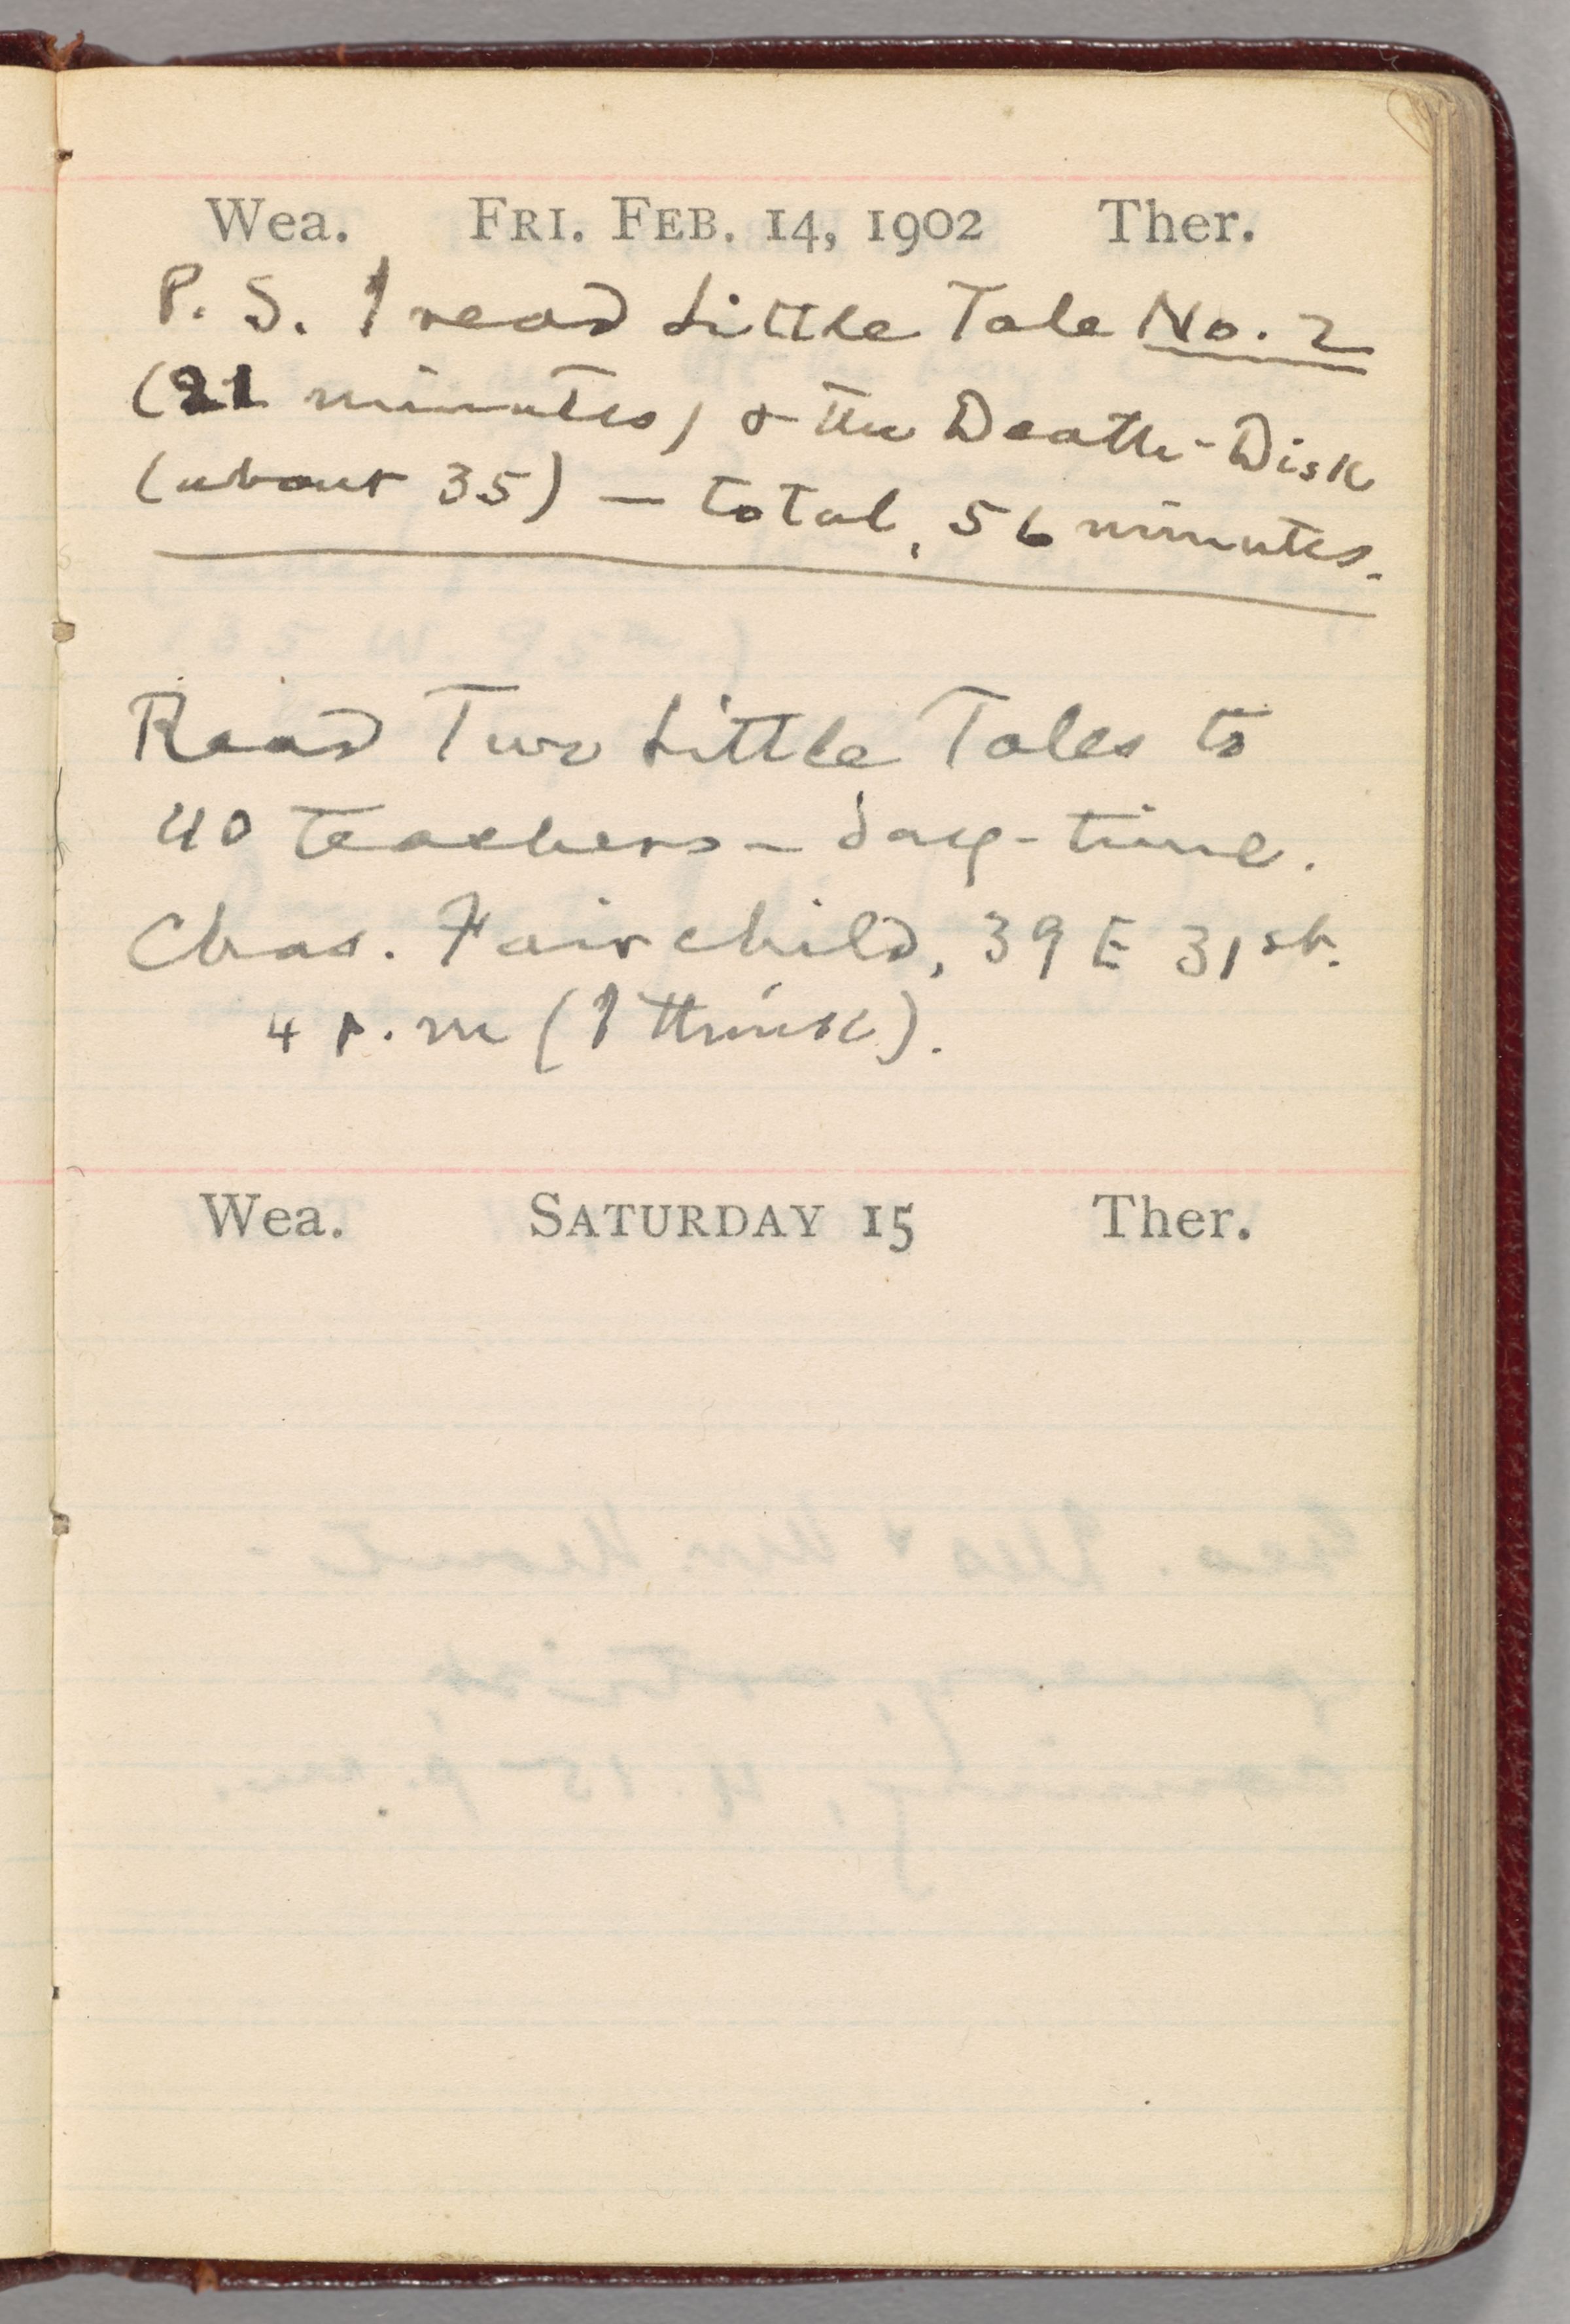 Wea. FRI. FEB. 14, 1902 Ther.
P. S. I read Little Tale No. 2
(21 minutes) & the Death-Disk
(about 35) — total, 56 minutes.
Read Two Little Tales to
40 teachers — day-time.
Chas. Fairchild, 39 E 31st.
4 p.m (I think).
Wea. SATURDAY 15 Ther.